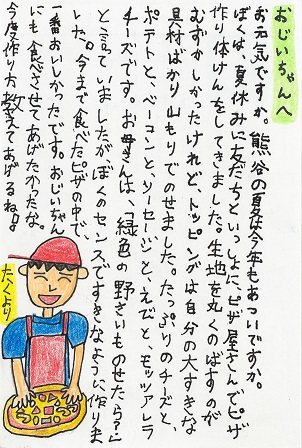 おじいちゃんへ
お元気ですか。熊谷の夏は今年もあついですか。
ぼくは、夏休みに友だちといっしょに、ピザ屋さんでピザ
作り体けんをしてきました。生地を丸くのばすのが
むずかしかったけれど、トッピングは自分の大すきな
具材ばかり山もりでのせました。たっぷりのチーズと、
ポテトと、ベーコンと、ソーセージと、えびと、モッツアレラ
チーズです。お母さんは、「緑色の野さいものせたら？」
と言っていましたがぼくのセンスですきなように作りま
した。今まで食べたピザの中で、
一番おいしかったです。おじいちゃん
にも食べさせてあげたかったな。
今度作り方教えてあげるね！
たくより